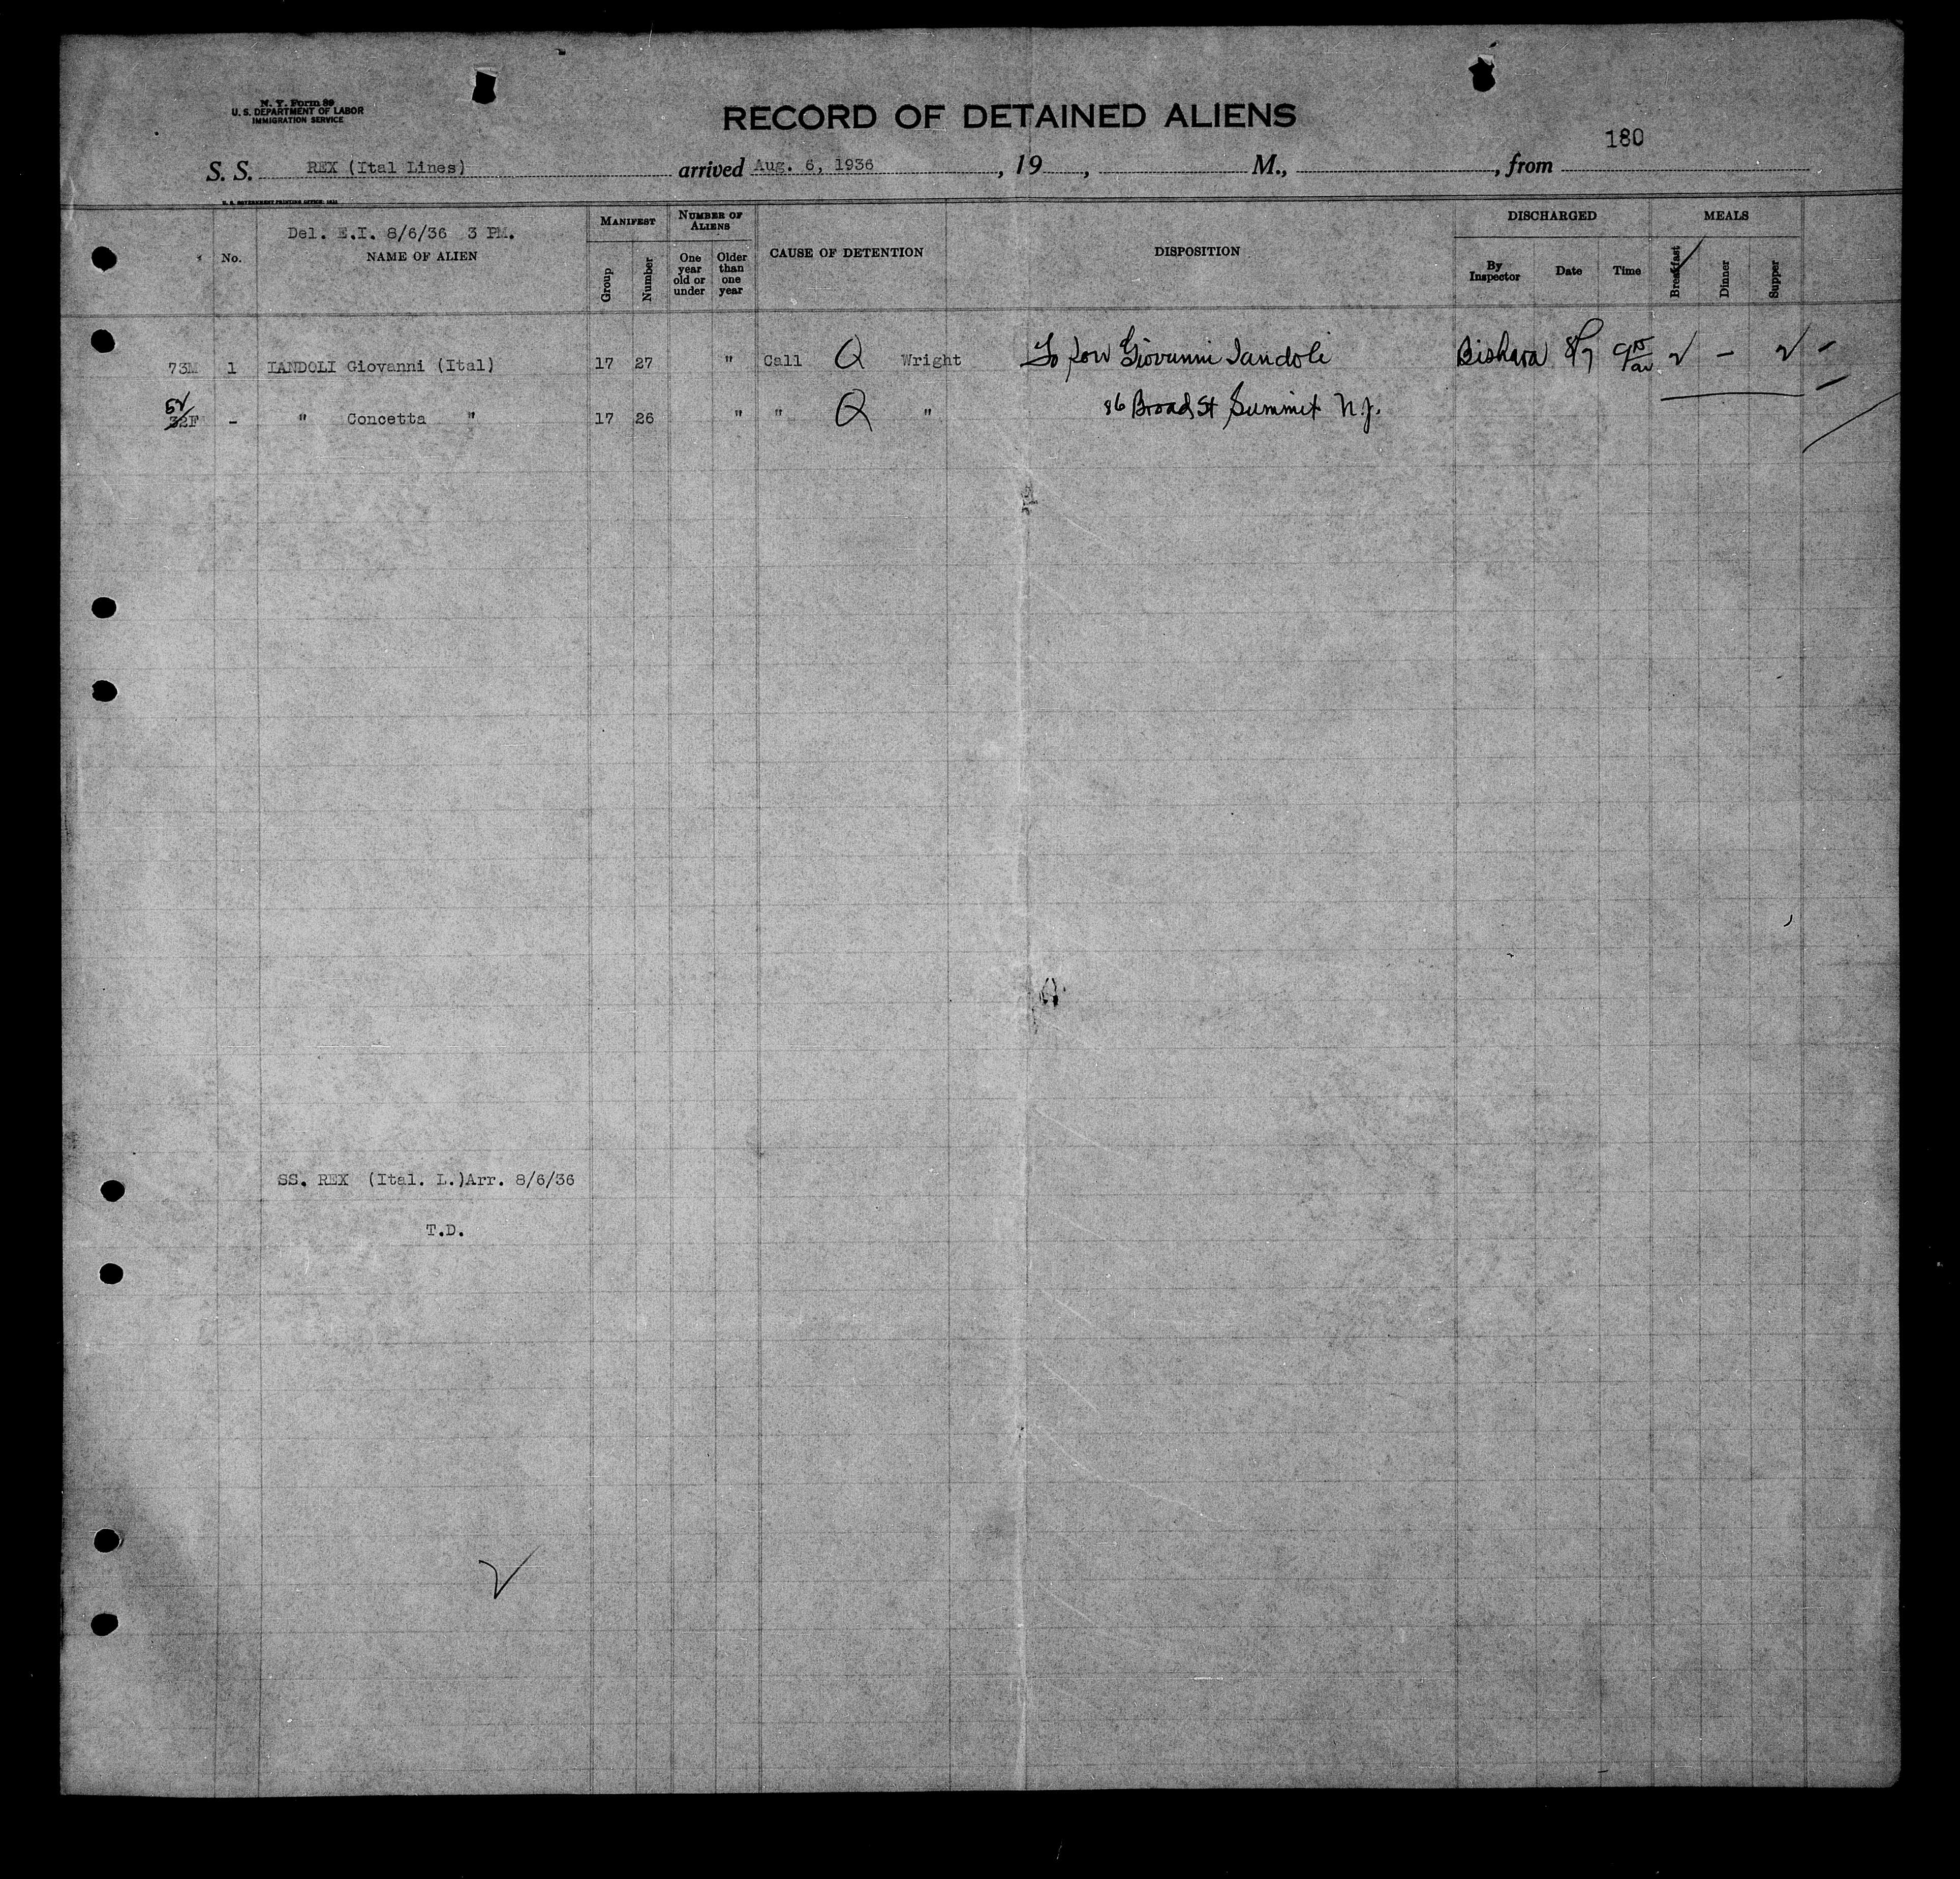 N. Y. Form 89
U. S. DEPARTMENT OF LABOR
IMMIGRATION SERVICE
RECORD OF DETAINED ALIENS
180
S. S. REX (Ital Lines) arrived Aug. 6, 1936, 19 , M., , from
U. S. GOVERNMENT PRINTING OFFICE:
Del. E.I. 8/6/36 3 PM.
No. NAME OF ALIEN MANIFEST Group Number NUMBER OF ALIENS One year old or under Older than one year CAUSE OF DETENTION DISPOSITION DISCHARGED By Inspector Date Time MEALS Breakfast Dinner Supper
73M 1 IANDOLI Giovanni (Ital) 17 27 " Call Q Wright To son Giovanni Iandoli Bishara 8/7 ✓ – ✓ –
52 32F – " Concetta " 17 26 " " Q " 86 Broad St Summit N.J. –
SS. REX (Ital. L.)Arr. 8/6/36
T.D.
✓